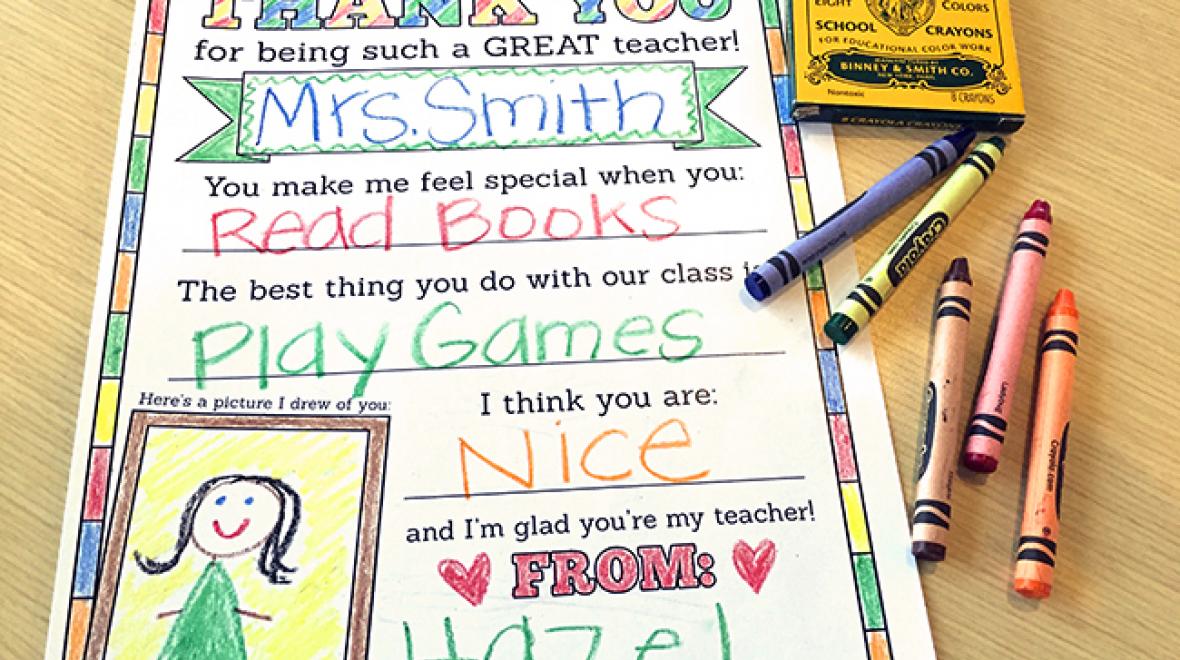 THANK YOU
for being such a GREAT teacher!
Mrs. Smith
You make me feel special when you:
Read Books
The best thing you do with our class
Play Games
Here's a picture I drew of you:
I think you are:
Nice
and I'm glad you're my teacher!
FROM:
Hazel
EIGHT COLORS
SCHOOL CRAYONS
FOR EDUCATIONAL COLOR WORK
BINNEY & SMITH CO.
NEW YORK, PARIS
Nontoxic 8 CRAYONS
8 CRAYOLA CRAYONS
Crayola